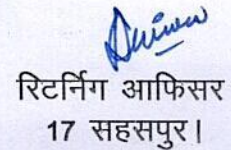 रिटर्निग आफिसर
17 सहसपुर।